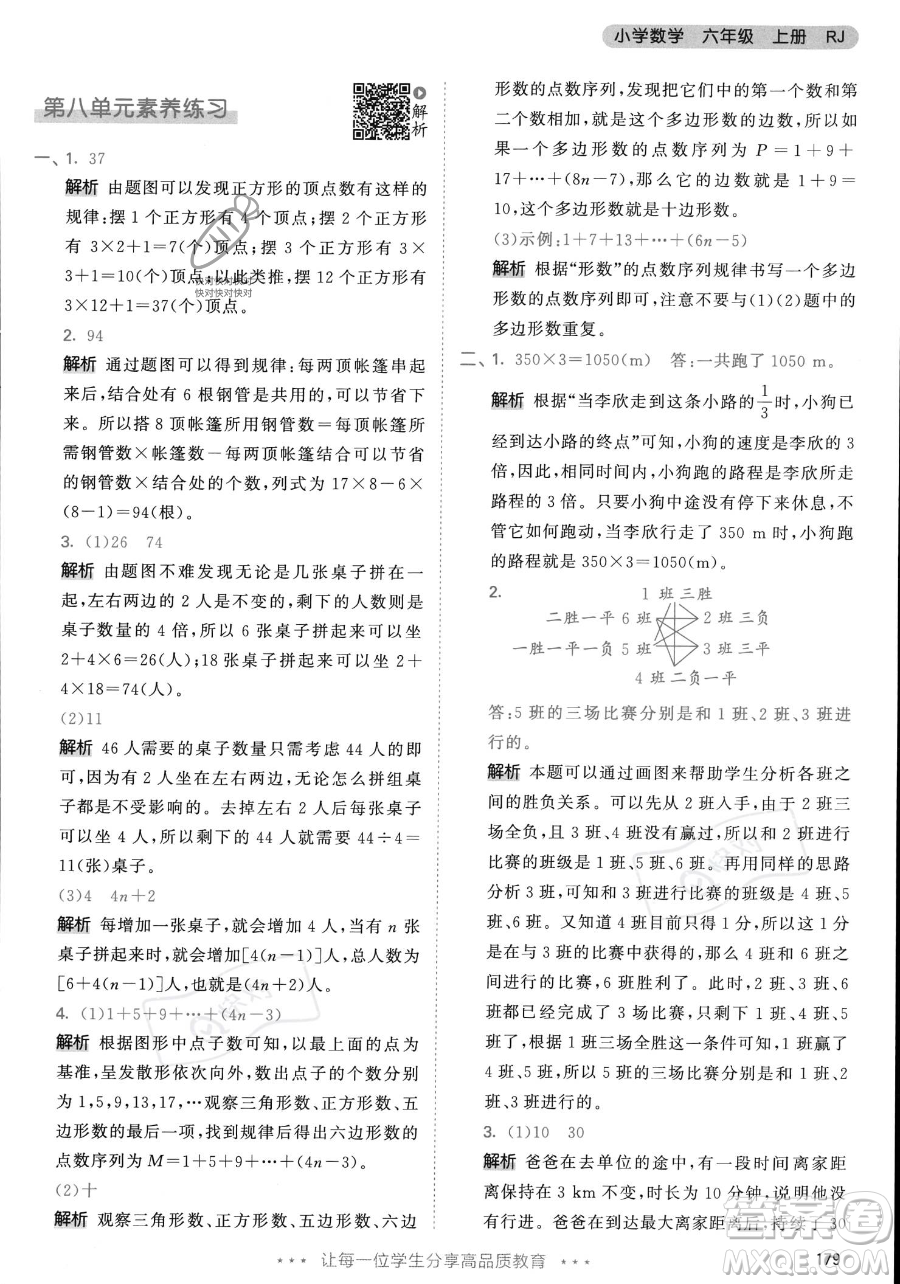 小学数学 六年级 上册 RJ
第八单元素养练习
解析
一、1. 37
解析 由题图可以发现正方形的顶点数有这样的
规律:摆 1 个正方形有 4 个顶点;摆 2 个正方形有
3×2+1=7(个)顶点;摆 3 个正方形有 3×
3+1=10(个)顶点;以此类推,摆 12 个正方形有
3×12+1=37(个)顶点。
快对快对快对
快对快对快对
2. 94
解析 通过题图可以得到规律:每两顶帐篷串起
来后,结合处有 6 根钢管是共用的,可以节省下
来。所以搭 8 顶帐篷所用钢管数=一顶帐篷所
需钢管数×帐篷数-每两顶帐篷结合处可以节省
的钢管数×结合处的个数,列式为 17×8-6×
(8-1)=94(根)。
3. (1)26 74
解析 由题图不难发现无论是几张桌子拼在一
起,左右两边的 2 人是不变的,剩下的人数则是
桌子数量的 4 倍,所以6 张桌子拼起来可以坐
2+4×6=26(人);18 张桌子拼起来可以坐 2+
4×18=74(人)。
(2)11
解析 46 人需要的桌子数量只需考虑 44 人的即
可,因为有 2 人坐在左右两边,无论怎么拼组桌
子都是不受影响的。去掉 2 人后,每张桌子
可以坐 4 人,所以剩下的 44 人需要 44÷4=
11(张)桌子。
(3)4 4n+2
解析 每增加一张桌子,总人数增加 4 人,当有 n 张
桌子拼起来时,增加了[4(n-1)]人,总人数为
[6+4(n-1)]人,也就是(4n+2)人。
4. (1)1+5+9+⋯+(4n-3)
解析 根据图形中点子数可知,以最左下角的点为
基准,呈发散形依次向外,数出点子的个数分别是
1,5,9,13,17,…观察三角形数、正方形数、五
边形数的点数序列,找到规律后得出六边形数的
点数序列为 M=1+5+9+⋯+(4n-3)。
(2)十
解析 观察三角形数、正方形数、五边形数、六边
形数的点数序列,发现把它们中的第一个数和第
二个数相加,就是这个多边形数的边数,所以如
果一个多边形数的点数序列为 P=1+9+
17+⋯+(8n-7),那么它的边数为 1+9=
10,这个多边形数就是十边形数。
(3)示例:1+7+13+⋯+(6n-5)
解析 根据“形数”的点数序列规律书写一个多边
形数的点数序列即可,注意不要与(1)(2)题中的
多边形数重复。
二、1. 350×3=1050(m) 答:一共跑了 1050 m。
解析 根据“当李欣走到这条小路的1/3时,小狗已
经到达小路的终点”可知,小狗的速度是李欣的 3
倍,因此,相同时间内,小狗跑的路程是李欣所走
路程的 3 倍。只要小狗中途没有停下来休息,不
管它如何跑动,当李欣走了 350 m 时,小狗跑
的路程就是 350×3=1050(m)。
2.
1 班三胜
二胜一平 6 班 2 班三负
一胜一平一负 5 班 3 班三平
4 班二负一平
答:5 班的三场比赛分别是和 1 班、2 班、3 班进
行的。
解析 本题可以通过画图来帮助学生分析各班之
间的胜负关系。可以先从 2 班入手,由于 2 班三
场全负,加上 4 班和 3 班都没有赢过,所以和 2 班
比赛的班级是 1 班、5 班、6 班。再用同样的思路
分析 3 班,可知和 3 班比赛的班级是 4 班、5
班、6 班。又知道 4 班目前只得 1 分,所以这 1 分
是在与 3 班的比赛中获得的,那么 4 班与 6 班之
间进行的比赛,6 班胜利了。此时,2 班、3 班、6 班
都已经完成了 3 场比赛,因为 1 班三场全胜,所以
1 班三场全胜的成绩只能是与 2 班、4 班、5 班进
行的。因此,5 班的三场比赛就是 1 班赢了
5 班、5 班赢了 2 班、5 班与 3 班打平,即和 1 班、
2 班、3 班进行的。
3. (1)10 30
解析 爸爸在去单位的途中,有一段时间离家距
离保持在 3 km 不变,持续了 10 分钟,说明堵车
10 分钟。爸爸在达到最大离家距离后,持续了 30
让每一位学生分享高品质教育
179
答案圈
MXQE.COM